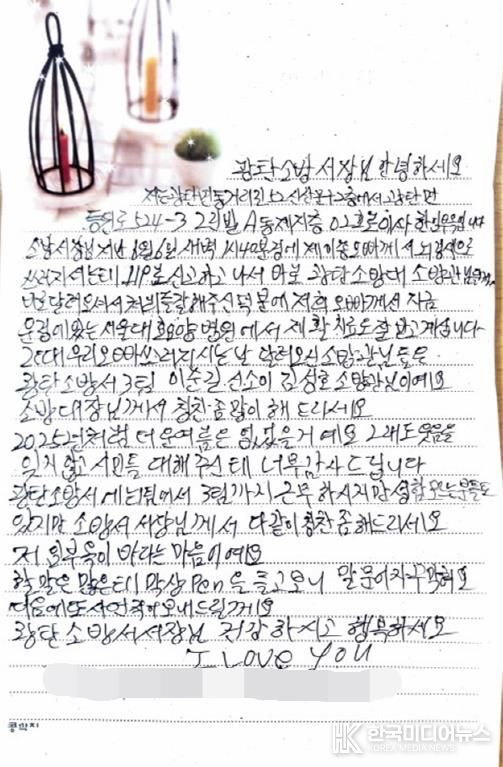 광탄소방서장님 안녕하세요
저는 광탄면
등원로 524-3 2전빌 A동 제지층 02호로 이사
소방서장님 지난 8월 6일 새벽 1시 40분경에 제 이종오빠께서 뇌경색으로
쓰러지셨는데 119로 신고하고 나서 바로 광탄소방대 소방관님
달려오셔서 처치를 잘해주신 덕분에 저희 오빠께서 지금
운정에 있는 서울대효요양병원에서 재활치료도 잘 받고 계십니다
그런데 우리 오빠 쓰러지시는 날 달려오신 소방관님들은
광탄소방서 3팀 이준길 선소이 김성호 소방관님이예요
소방대장님께서 칭찬 좀 많이 해 드리세요
2025년처럼 더운 여름은 없었을거예요 그래도 웃음을
잊지 않고 시민들 대해주신데 너무 감사드립니다
광탄소방서에 1팀에서 3팀까지 근무하시지만 성함 모르는 분들도
있지만 소방서 서장님께서 다같이 칭찬 좀 해드리세요
저 의 부족이 바라는 마음이예요
할 말은 많은데 막상 Pen을 들고보니 말문이
다음에 또 사연 적어 보내드릴께요
광탄소방서 서장님 건강하시고 행복하세요
I LOVE YOU
콩깍지
HK 한국미디어뉴스
KOREA MEDIA NEWS